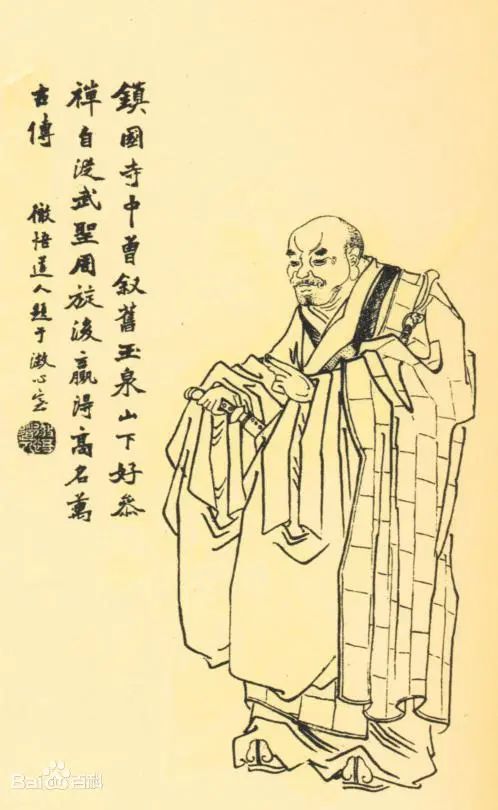 鎮國寺中曾叙舊玉泉山下好叅
禪自從武聖周旋後贏得高名萬
古傳
徹悟道人題于漱心室
Baidu百科